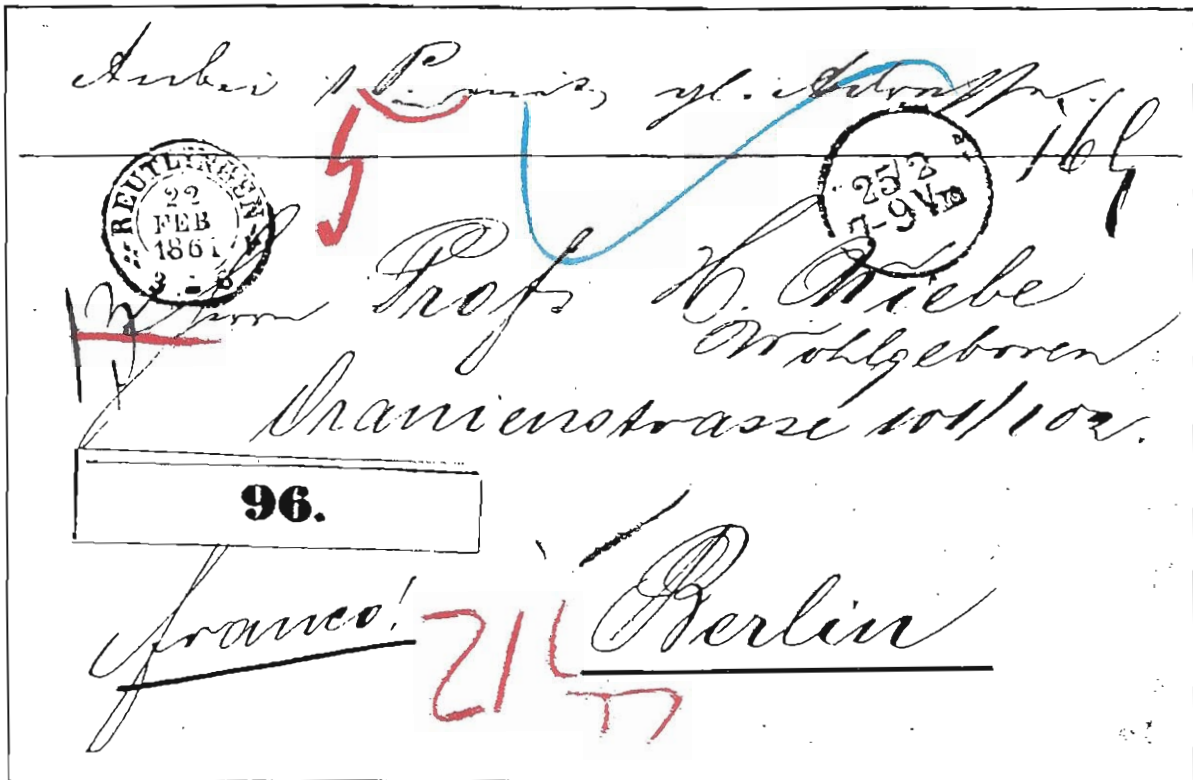 Anbei 1 gl. Adresse.
5
REUTLINGEN
22
FEB
1861
25/2
7-9 VM
Herrn Profs H. Wiebe
Wohlgeboren
Oranienstrasse 101/102.
96.
franco!
Berlin